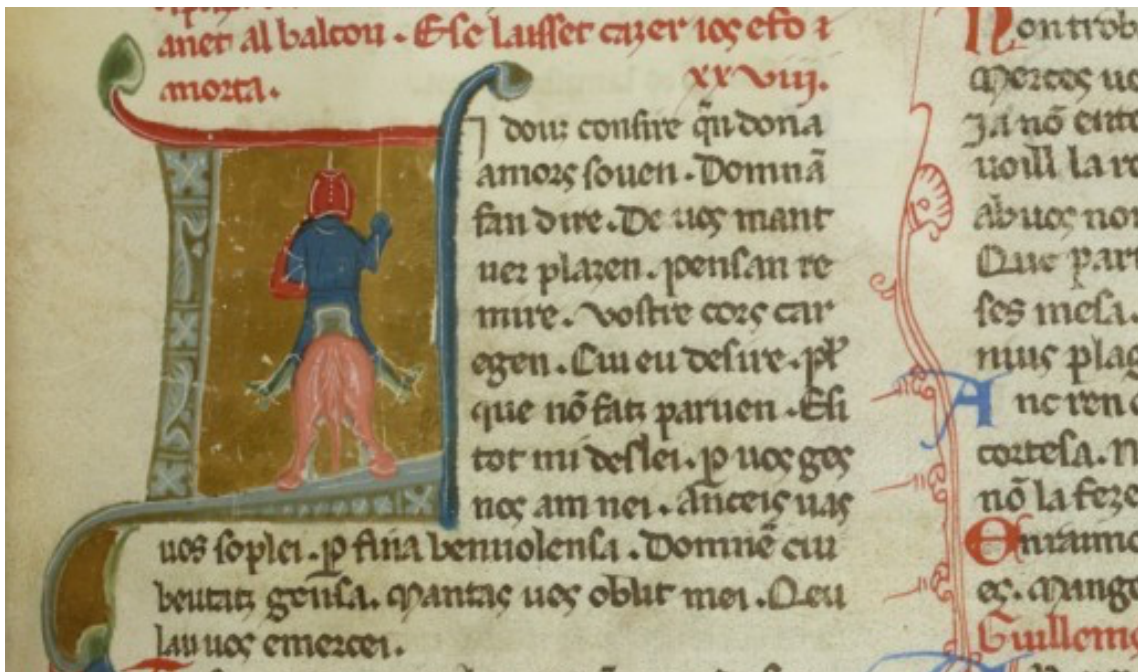 anet al balcon · E se laisset cazer ios e fo ⁊
morta · xxviii.
I douz consire q̃m dona
amors souen · Domnã
fan dire · De uos mant
uer plazen · pensan re
mire · vostre cors car
e gen · Cui eu desire · p̱l
que nõ fatz paruen · E si
tot mi deslei · p̱ uos ges
nos am nei · Anceis uas
uos soplei · p̱ fina benuolensa · Domnẽ cui
beutatz gensa · Mantas ues oblit mei · Qeu
lau uos e mercei ·
Non trob
Merces ue
Ja nõ ente
uoill la re
Ab uos no
Que part
ses mesa ·
nius plag
Anc ren
cortesa ·
nõ la feze
En raimo
es · Mang
Guillems